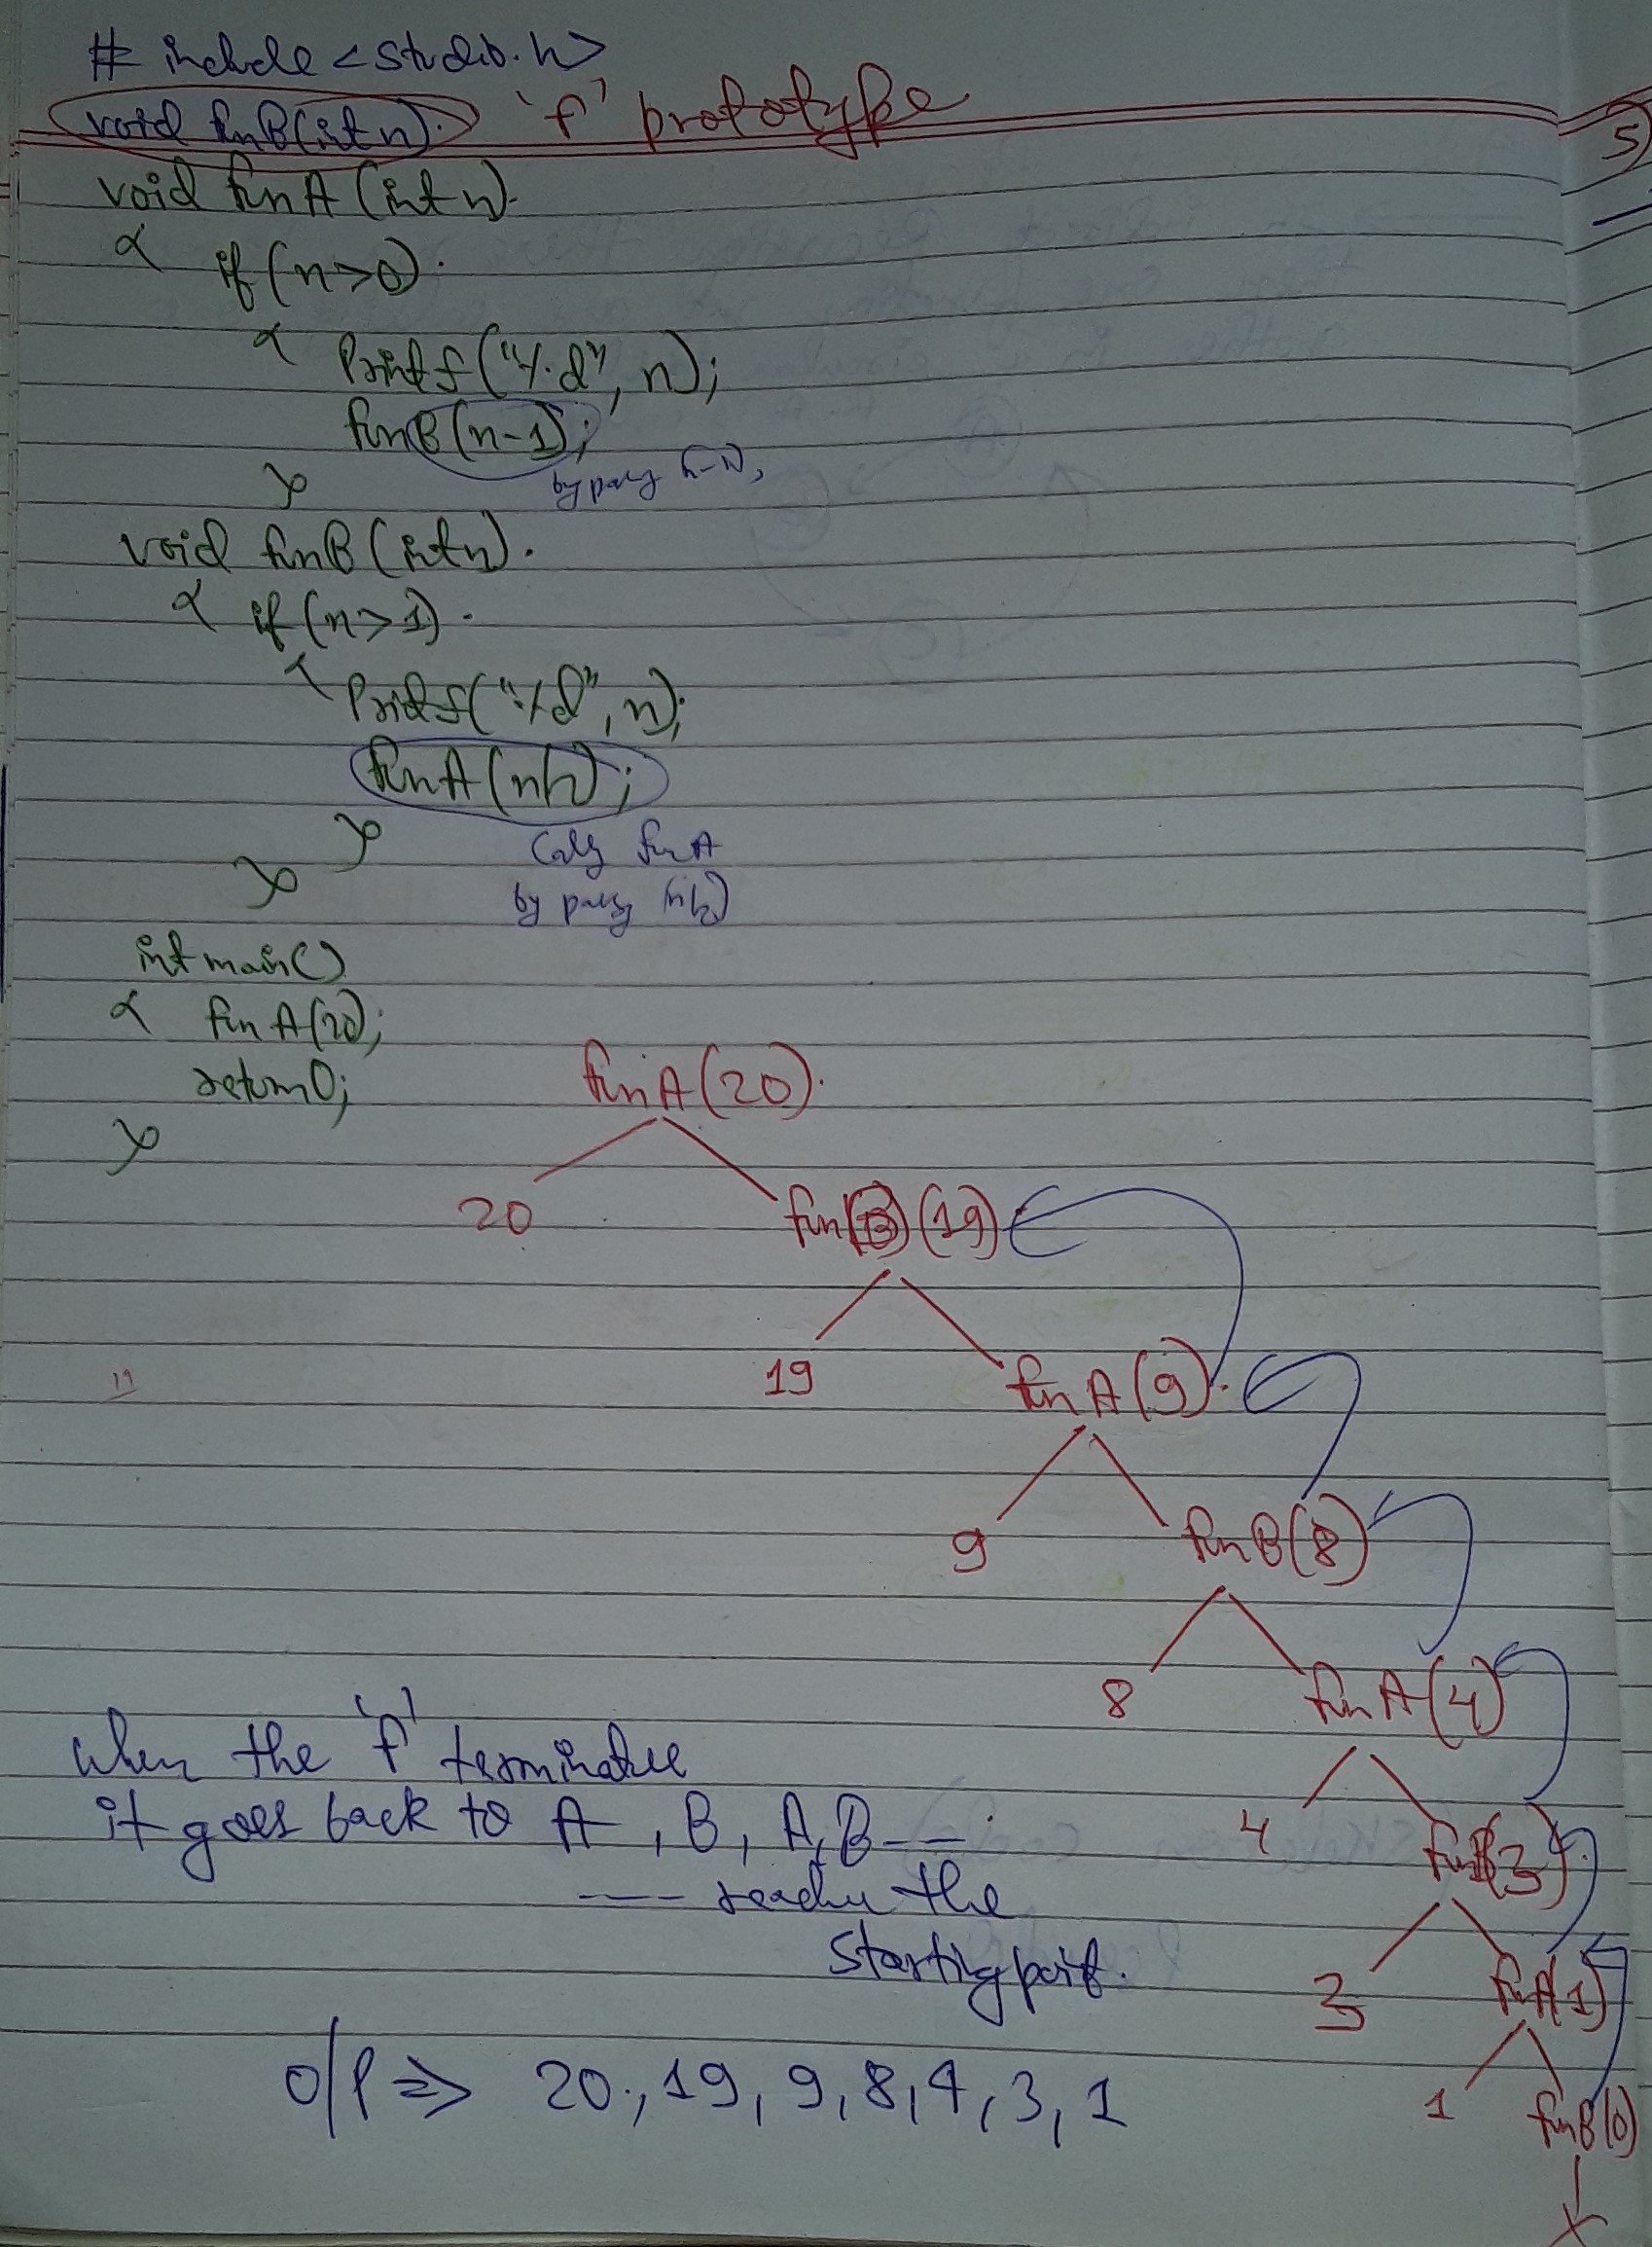 # include <stdio.h>
void funB(int n). 'f' prototype
5)
void funA (int n).
{ if (n>0).
{ Printf ("%d", n);
funB (n-1);
by passg (n-1),
}
void funB (int n).
{ if (n>1).
{ Printf ("%d", n);
funA (n/2);
}
Calls funA
} by passg (n/2)
int main()
{ fun A(20);
return 0;
}
funA (20).
20 fun(B) (19)
19 fun A (9).
9 funB (8)
8 fun A (4)
4 funB(3)
3 funA(1)
1 funB(0)
x
when the 'f' terminates
it goes back to A, B, A, B —
--- reaches the
starting point.
o/p => 20, 19, 9, 8, 4, 3, 1